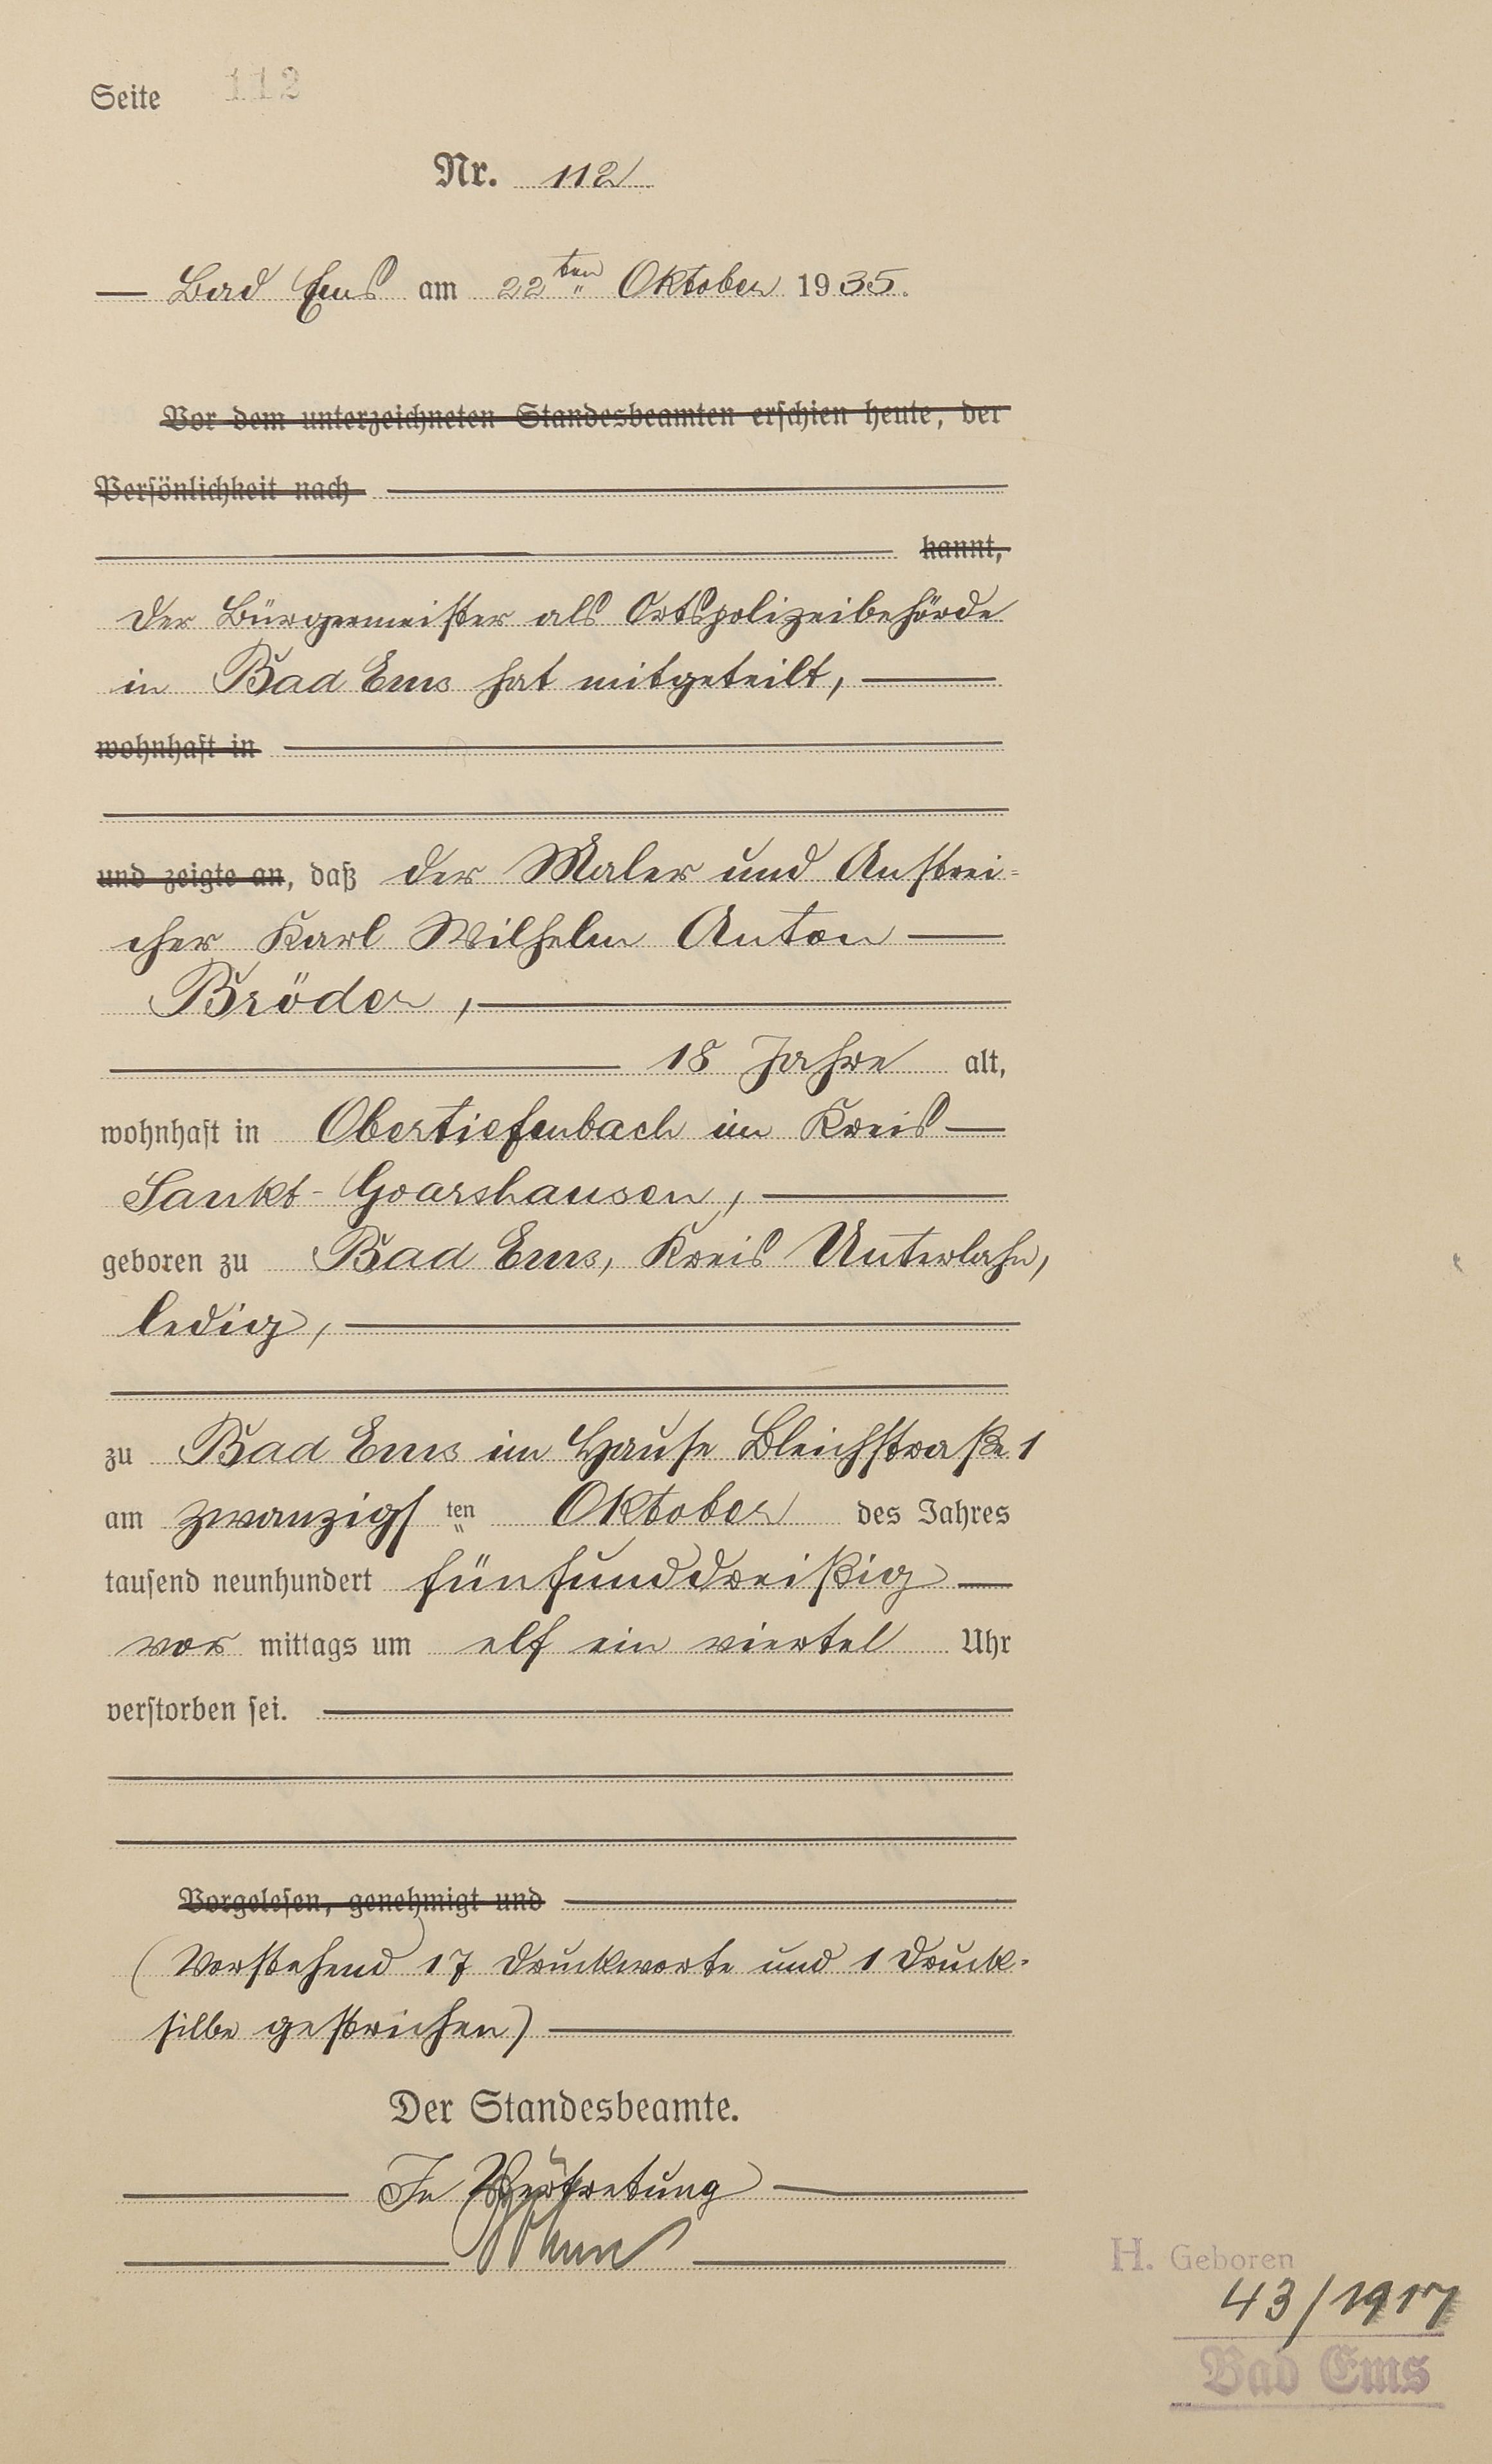 Seite 112
Nr. 112
Bad Ems am 22ten Oktober 1935.
Vor dem unterzeichneten Standesbeamten erschien heute, der
Persönlichkeit nach
kannt,
der Bürgermeister als Ortspolizeibehörde
in Bad Ems hat mitgeteilt,
wohnhaft in
und zeigte an, daß der Maler und Anstrei=
cher Karl Wilhelm Anton
Bröder,
18 Jahre alt,
wohnhaft in Obertiefenbach im Kreis
Sankt-Goarshausen,
geboren zu Bad Ems, Kreis Unterlahn,
ledig,
zu Bad Ems im Hause Bleichstraße 1
am zwanzigsten Oktober des Jahres
tausend neunhundert fünfunddreißig
vor mittags um elf ein viertel Uhr
verstorben sei.
Vorgelesen, genehmigt und
(Vorstehend 17 Druckworte und 1 Druck-
silbe gestrichen)
Der Standesbeamte.
In Vertretung
H. Geboren
43/1917
Bad Ems